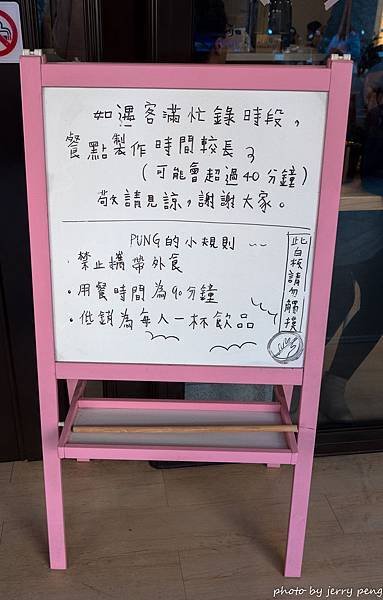 如遇客滿忙錄時段，
餐點製作時間較長
(可能會超過40分鐘)
敬請見諒，謝謝大家。
PUNG的小規則
禁止攜帶外食
・用餐時間為90分鐘
・低銷為每人一杯飲品
此白板請勿觸摸
photo by jerry peng